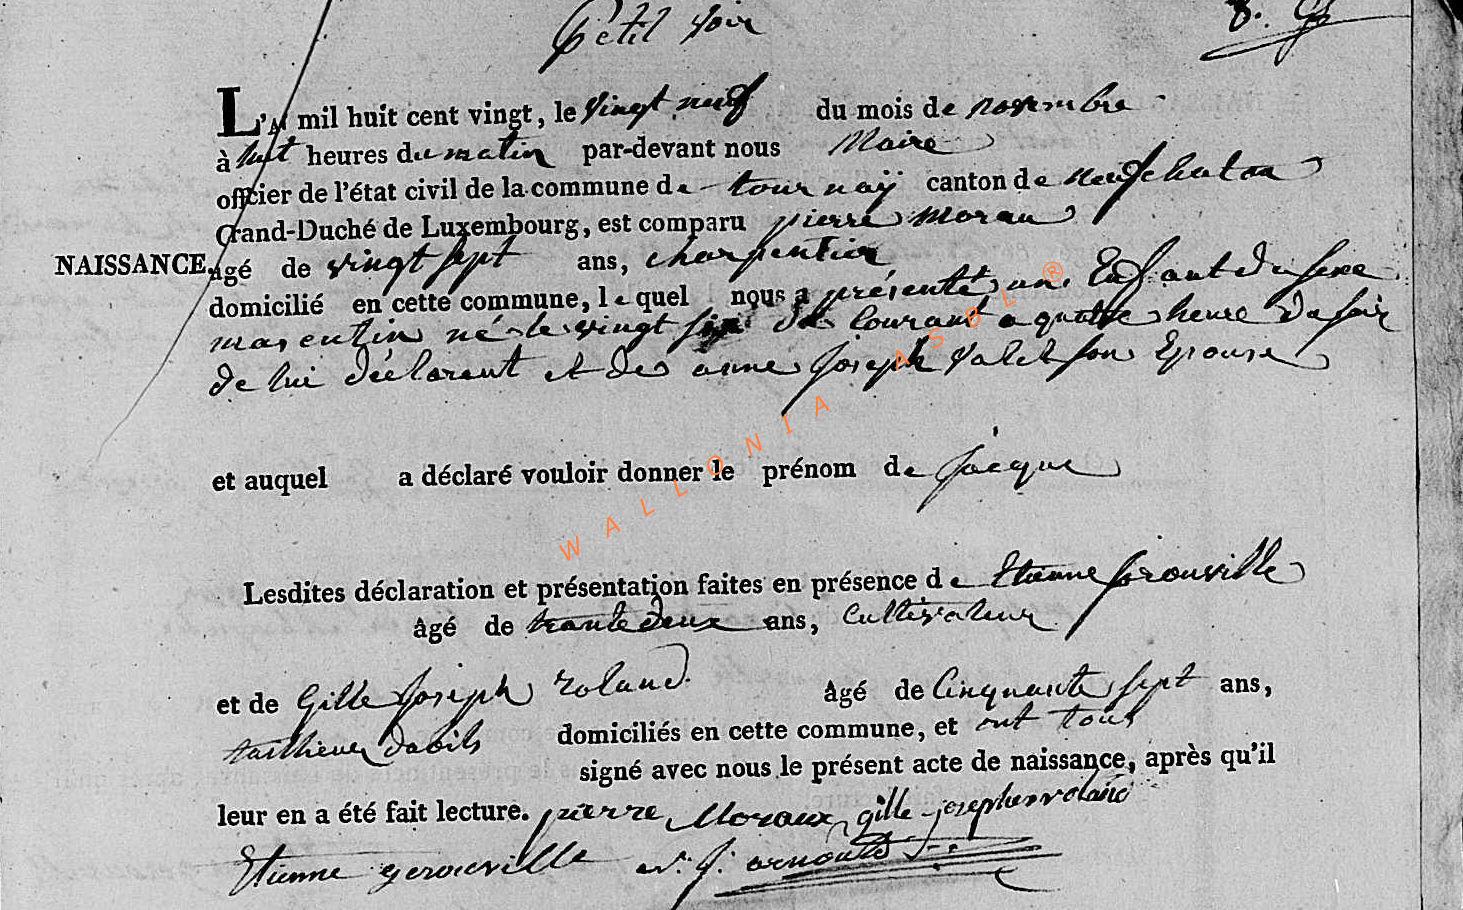 Petit Voir
8.
L'AN mil huit cent vingt, le vingt neuf du mois de novembre
à huit heures du matin par-devant nous Maire
officier de l'état civil de la commune de tournaÿ canton de neufchateau
Grand-Duché de Luxembourg, est comparu pierre Moraux
NAISSANCE. âgé de vingt sept ans, charpentier
domicilié en cette commune, lequel nous a présenté un Enfant du sexe
masculin né le vingt six du Courant a quatre heure du soir
de lui déclarant et de anne Joseph valet son Epouse
et auquel a déclaré vouloir donner le prénom de Jacque
Lesdites déclaration et présentation faites en présence de Etienne Gerouville
âgé de trante deux ans, Cultivateur
et de Gille Joseph roland âgé de Cinquante sept ans,
tailheur dabils domiciliés en cette commune, et ont tous
signé avec nous le présent acte de naissance, après qu'il
leur en a été fait lecture. pierre Moraux gille joseph roland
Etienne gerouville J. arnould
WALLONIA ASBL ®